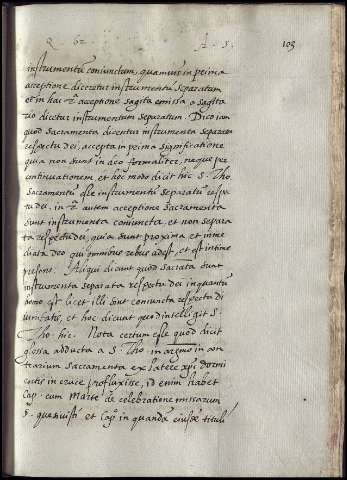 Q 62 A. 5. 103
instrumentũ coniunctum, quamuis in prima
acceptione diceretur instrumentũ separatum
et in hac 2ª acceptione sagita emissa a sagita
rio dicetur instrumentum separatum. Dico ian
quod Sacramenta dicentur instrumenta separata
respectu dei, accepta in prima significatione
quia non sunt in deo formaliter, neque per
continuationem et hoc modo dicit hic S. Tho
Sacramentũ esse instrumentũ separatũ respe
tu dei, in 2ª autem acceptione Sacramenta
sunt instrumenta coniuncta, et non separa
ta respectu dei, quia sunt proxima et inme
diata deo qui omnibus rebus adest, et est intime
presens. Aliqui dicunt quod sacrata sunt
instrumenta separata respectu dei inquantũ
homo est licet illi sint coniuncta respectu di
uinitatis, et hoc dicunt quod intelligit S.
Tho hic. Nota certum esse quod dicit
glossa adducta a S. Tho in argmo in con
trarium sacramenta ex latere xpi dormi
entis in cruce profluxisse, id enim habet
Cap. cum Marte de celebratione missarum
§. quesiuisti et Cap in quadã eiusdẽ tituli